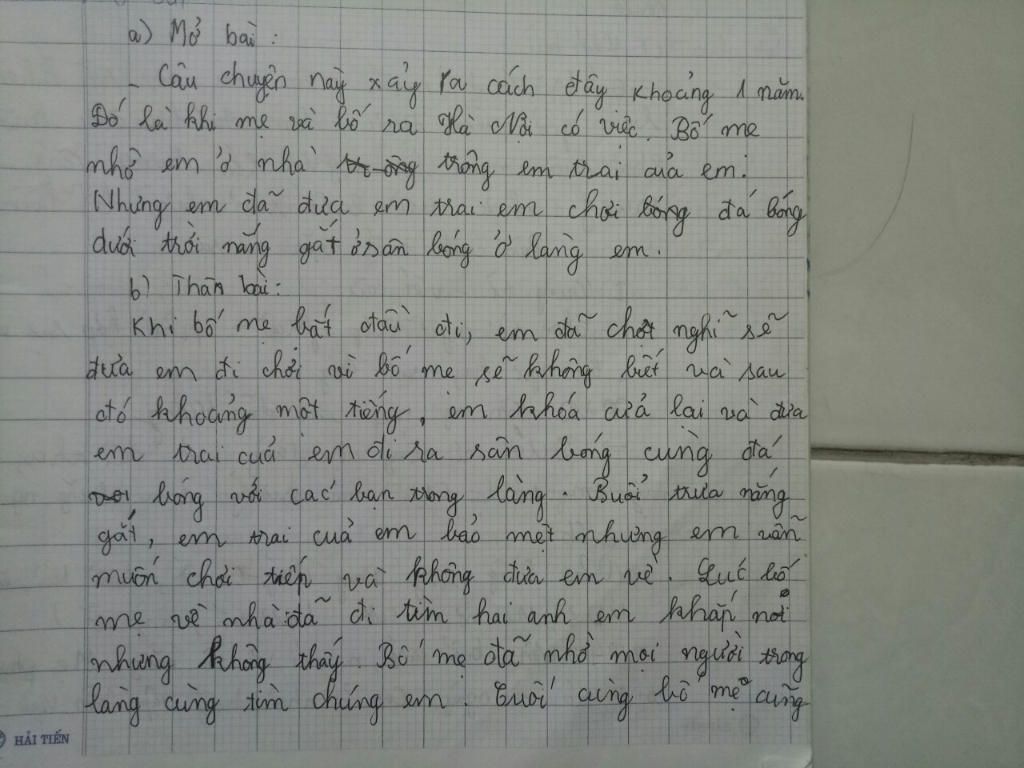 a) Mở bài:
- Câu chuyện này xảy ra cách đây khoảng 1 năm.
Đó là khi mẹ và bố ra Hà Nội có việc. Bố mẹ
nhờ em ở nhà trông em trai của em.
Nhưng em đã đưa em trai em chơi bóng đá bóng
dưới trời nắng gắt ở sân bóng ở làng em.
b) Thân bài:
Khi bố mẹ bắt đầu đi, em đã chợt nghĩ sẽ
đưa em đi chơi vì bố mẹ sẽ không biết và sau
đó khoảng một tiếng, em khóa cửa lại và đưa
em trai của em đi ra sân bóng cùng đá
bóng với các bạn trong làng. Buổi trưa nắng
gắt, em trai của em bảo mệt nhưng em vẫn
muốn chơi tiếp và không đưa em về. Lúc bố
mẹ về nhà đã đi tìm hai anh em khắp nơi
nhưng không thấy. Bố mẹ đã nhờ mọi người trong
làng cùng tìm chúng em. Cuối cùng bố mẹ cũng
HẢI TIẾN